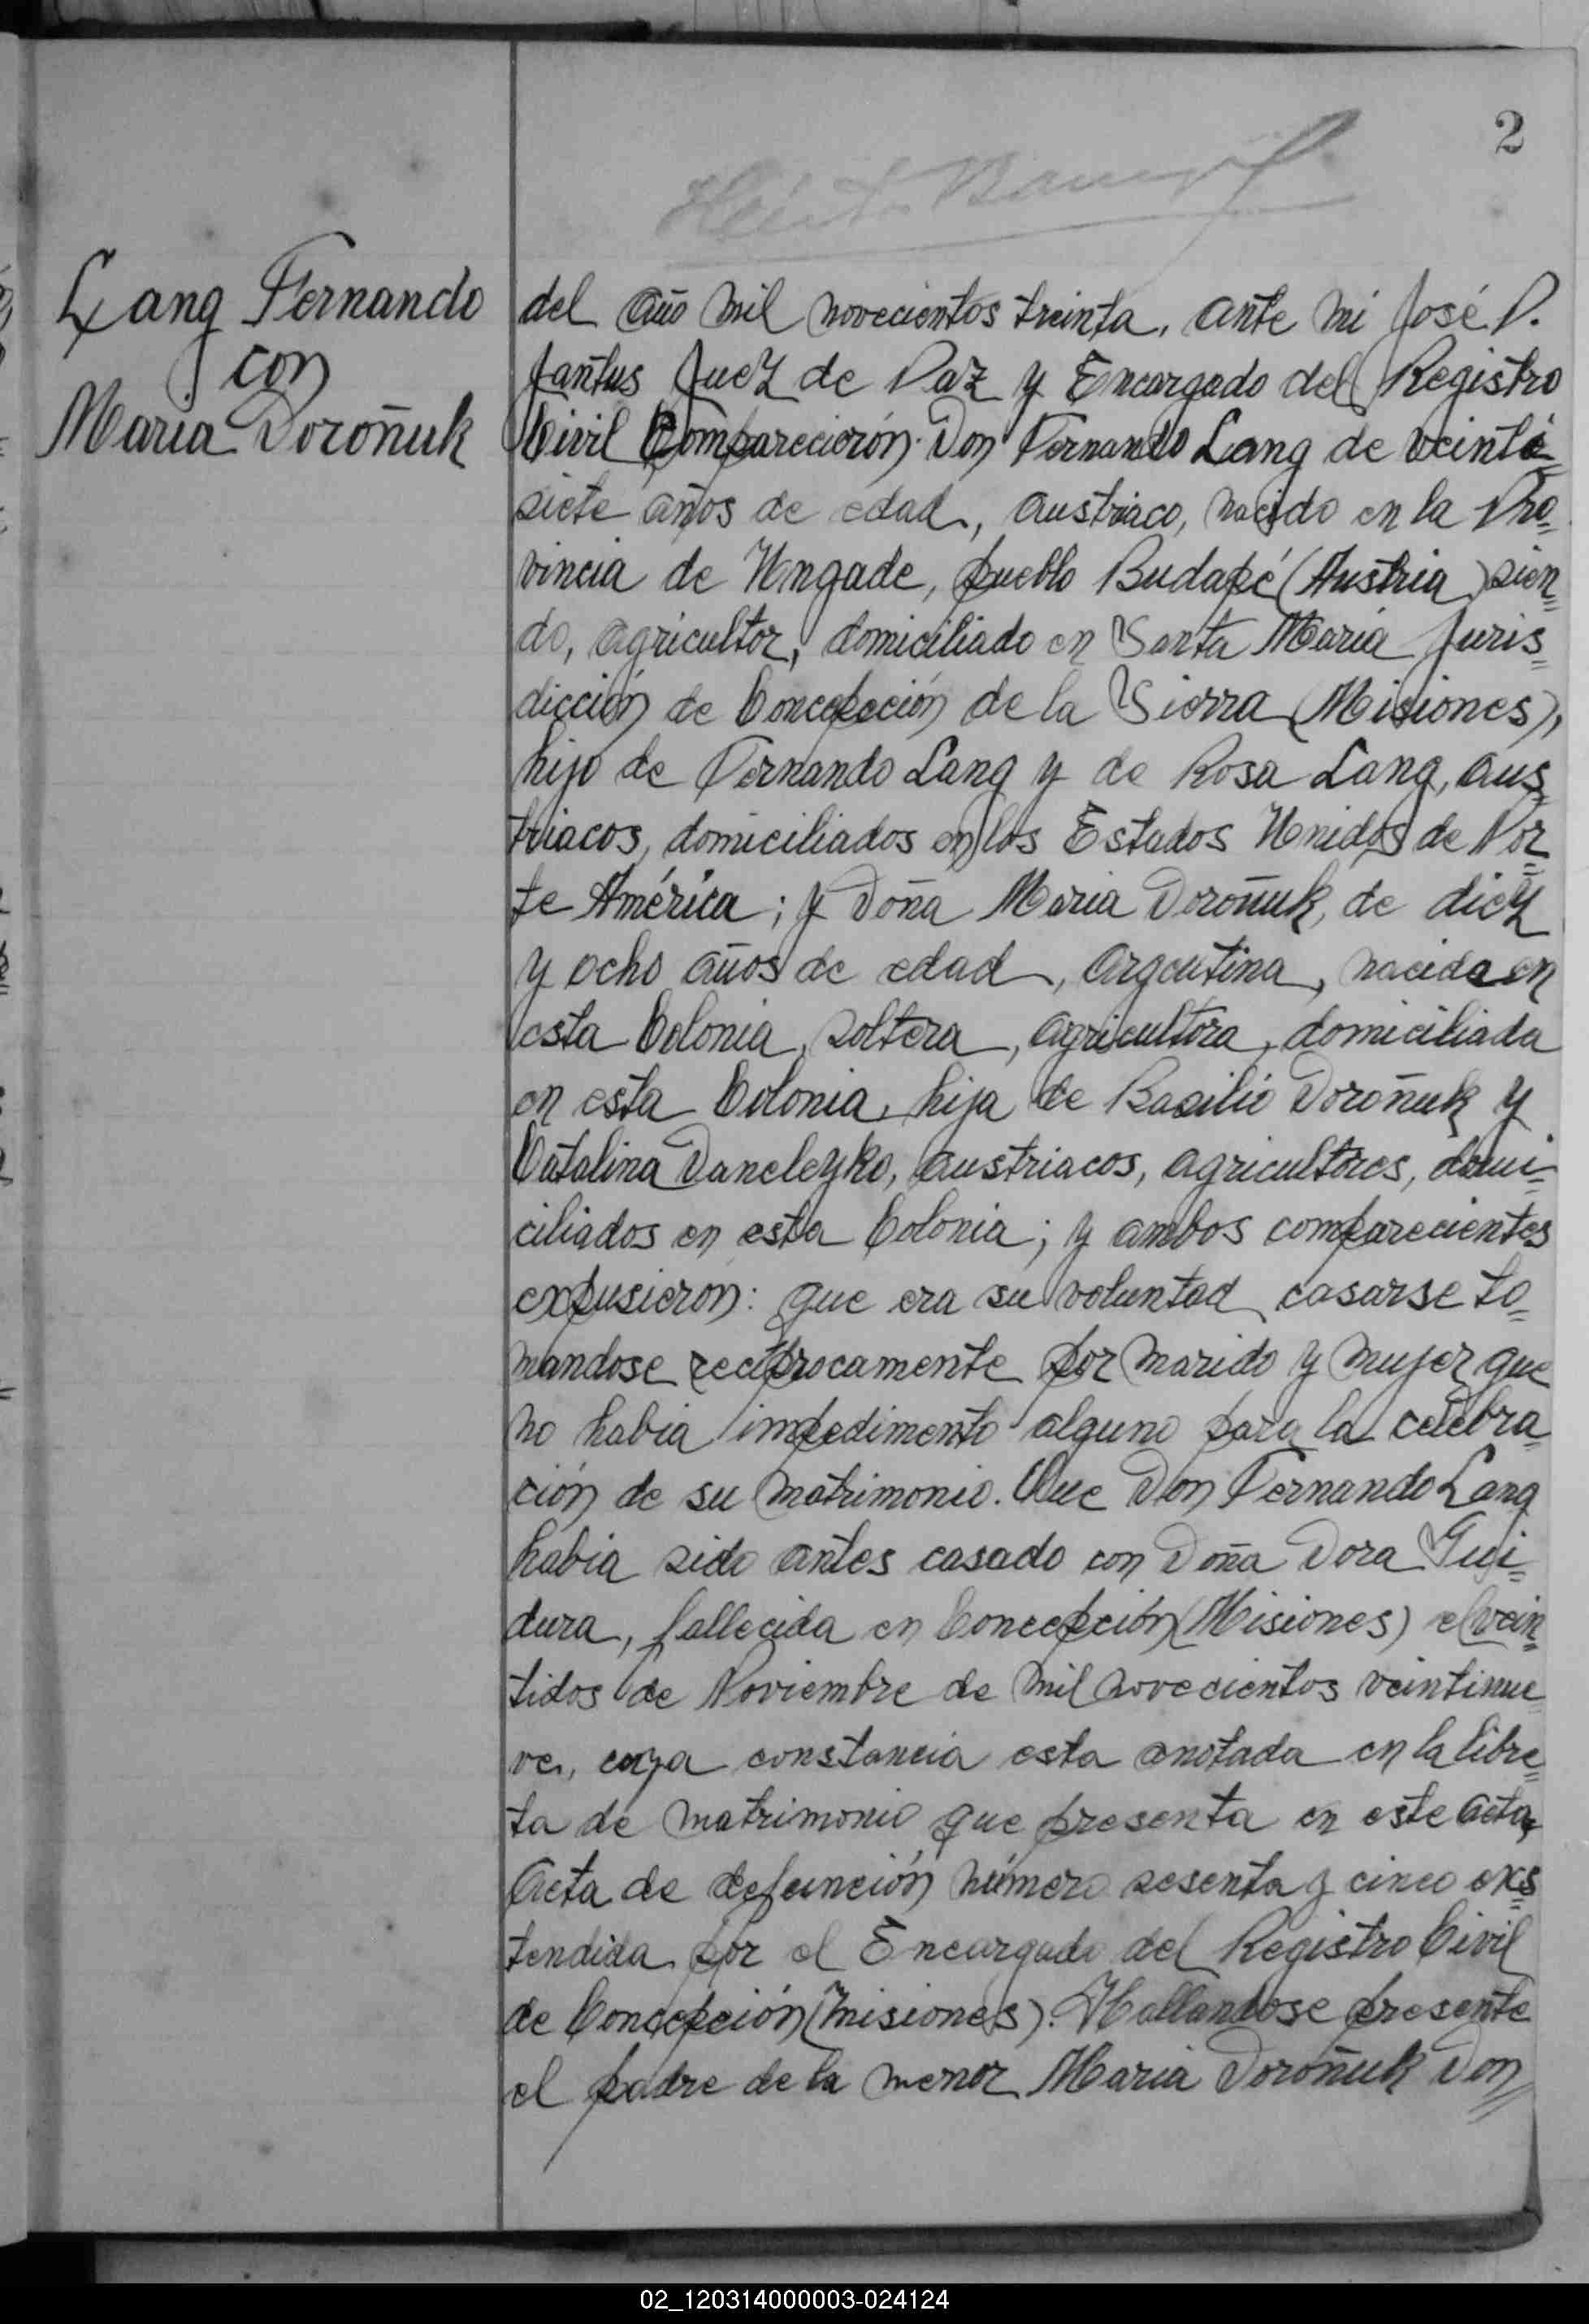 2
Lang Fernando
con
Maria Doroñuk
del año mil novecientos treinta, ante mi José P.
Jantus Juez de Paz y Encargado del Registro
Civil Comparecierón Don Fernando Lang de veinti=
siete años de edad, austriaco, nacido en la Pro=
vincia de Ungade, pueblo Budapé (Austria) sien=
do, agricultor, domiciliado en Santa Maria Juris=
dicción de Concepción de la Sierra (Misiones),
hijo de Fernando Lang y de Rosa Lang, aus=
triacos, domiciliados en los Estados Unidos de Nor=
te América; y Doña Maria Doroñuk, de diez
y ocho años de edad, argentina, nacida en
esta Colonia, soltera, agricultora, domiciliada
en esta Colonia, hija de Basilio Doroñuk y
Catalina Daneleyko, austriacos, agricultores, domi=
ciliados en esta Colonia; y ambos comparecientes
expusierón: que era su voluntad casarse to=
mandose reciprocamente por marido y mujer que
no habia impedimento alguno para la celebra=
ción de su matrimonio. Que Don Fernando Lang
habia sido antes casado con Doña Dora Gui=
dura, fallecida en Concepción (Misiones) el vein=
tidos de Noviembre de mil novecientos veintinue=
ve, cuya constancia esta anotada en la libre=
ta de matrimonio que presenta en este acta,
Acta de defunción número sesenta y cinco exs=
tendida por el Encargado del Registro Civil
de Concepción (Misiones). Hallandose presente
el padre de la menor Maria Doroñuk Don=
02_120314000003-024124